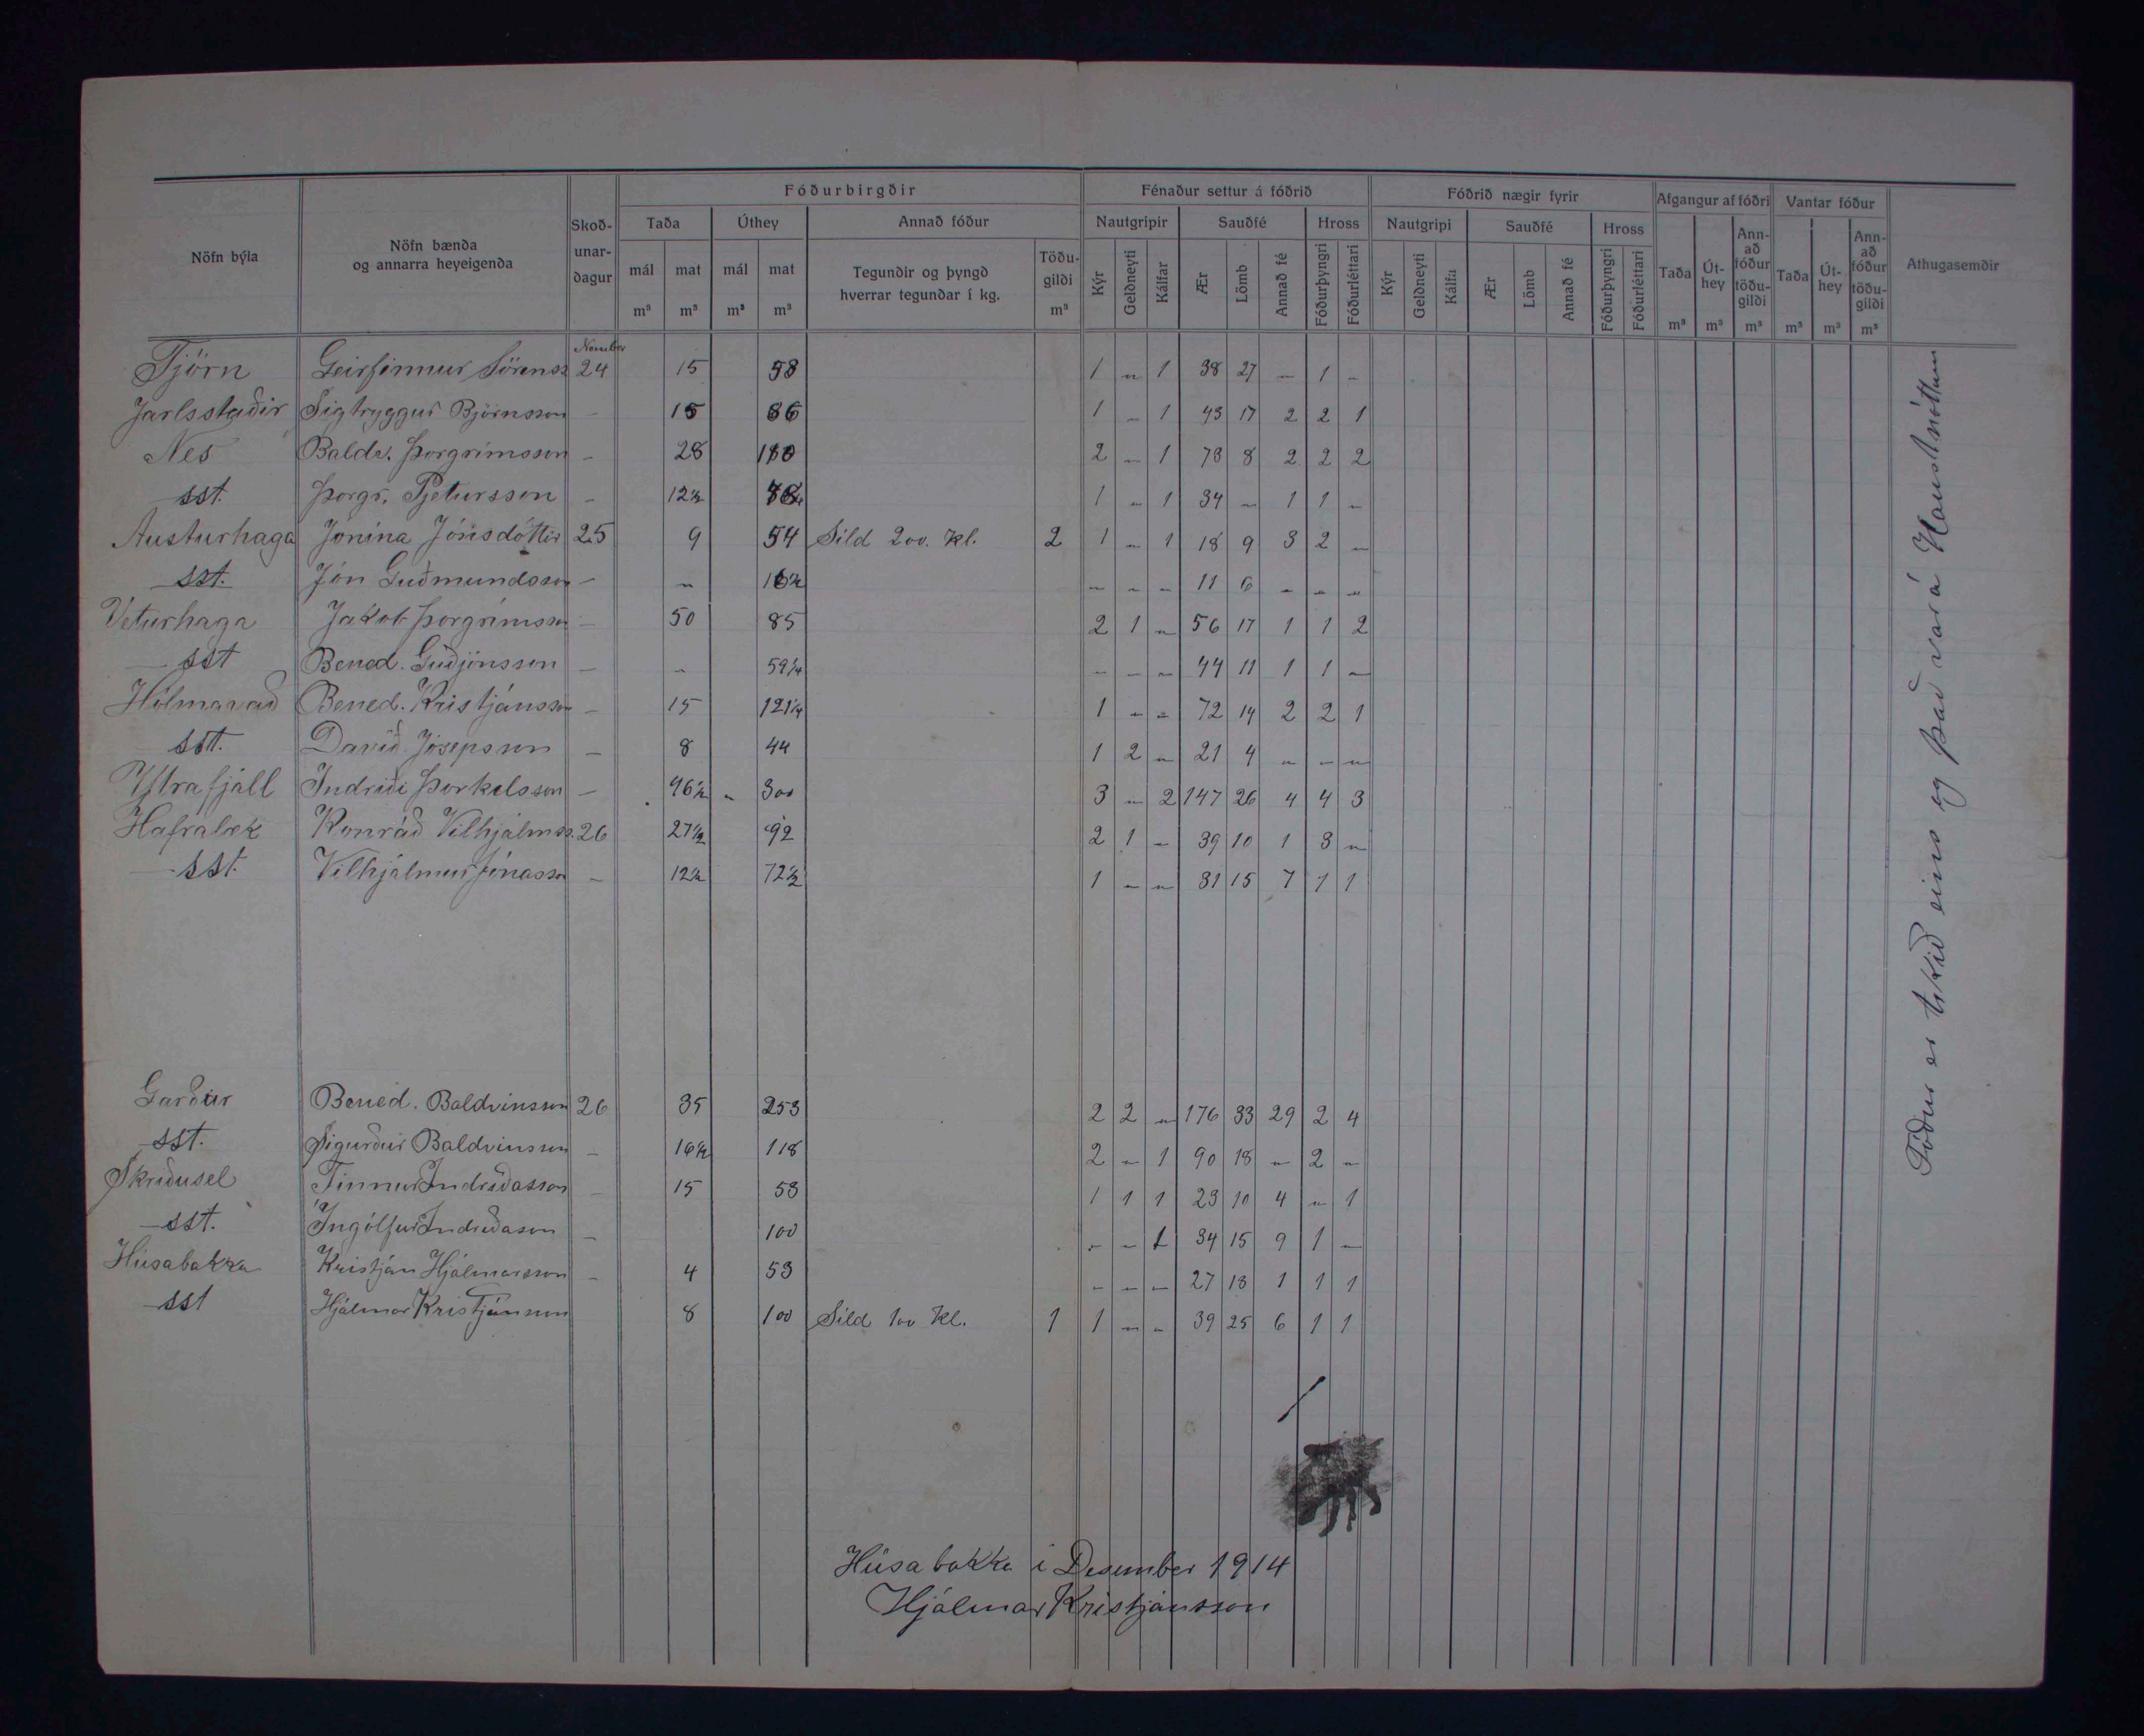 Fóðurbirgðir Fénaður settur á fóðrið Fóðrið nægir fyrir Afgangur af fóðri Vantar fóður
Nöfn býla Nöfn bænda og annarra heyeigenda Skoð-unar-dagur Taða Úthey Annað fóður Nautgripir Sauðfé Hross Nautgripi Sauðfé Hross Athugasemdir
mál m³ mat m³ mál m³ mat m³ Tegundir og þyngd hverrar tegundar í kg. Töðu-gildi m³ Kýr Geldneyti Kálfar Ær Lömb Annað fé Fóðurþyngri Fóðurléttari Kýr Geldneyti Kálfa Ær Lömb Annað fé Fóðurþyngri Fóðurléttari Taða m³ Út-hey m³ Ann-að fóður töðu-gildi m³ Taða m³ Út-hey m³ Ann-að fóður töðu-gildi m³
Tjörn Geirfinnur Sörenss 24 15 58 1 - 1 38 27 - 1 -
Jarlsstaðir Sigtryggur Björnsson - 15 86 1 - 1 43 17 2 2 1
Nes Baldv. Þorgrímsson - 28 2 - 1 78 8 2 2 2
sst. Þorgr. Pjetursson - 12½ 1 - 1 34 - 1 1 -
Austurhaga Jónína Jónsdóttir 25 9 54 Síld 200. Kl. 2 1 - 1 18 9 3 2 -
sst. Jón Guðmundsson - - 16½ - - - 11 6 - - -
Veturhaga Jakob Þorgrímsson - 50 85 2 1 - 56 17 1 1 2
sst Bened. Guðjónsson - - 59¼ - - - 44 11 1 1 -
Hólmavað Bened. Kristjánsson - 15 121¼ 1 - - 72 14 2 2 1
sst. Davíð Jósepsson - 8 44 1 2 - 21 4 - - -
Ytrafjall Indriði Þorkelsson - 46½ - 300 3 - 2 147 26 4 4 3
Hafralæk Konráð Vilhjálmss. 26 27½ 92 2 1 - 39 10 1 3 -
sst. Vilhjálmur Jónasson - 12½ 72½ 1 - - 31 15 7 1 1
Garður Bened. Baldvinsson 26 35 253 2 2 - 176 33 29 2 4
sst. Sigurður Baldvinsson - 16½ 118 2 - 1 90 18 - 2 -
Skriðusel Finnur Indriðasson - 15 58 1 1 1 23 10 4 - 1
sst. Ingólfur Indriðason - 100 - - 1 34 15 9 1 -
Húsabakka Kristján Hjálmarsson - 4 53 - - - 27 18 1 1 1
sst Hjálmar Kristjánsson 8 100 Síld 100 Kl. 1 1 - - 39 25 6 1 1
Fóður er tekið eins og það var á Haustnóttum
Húsabakka í Desember 1914
Hjálmar Kristjánsson